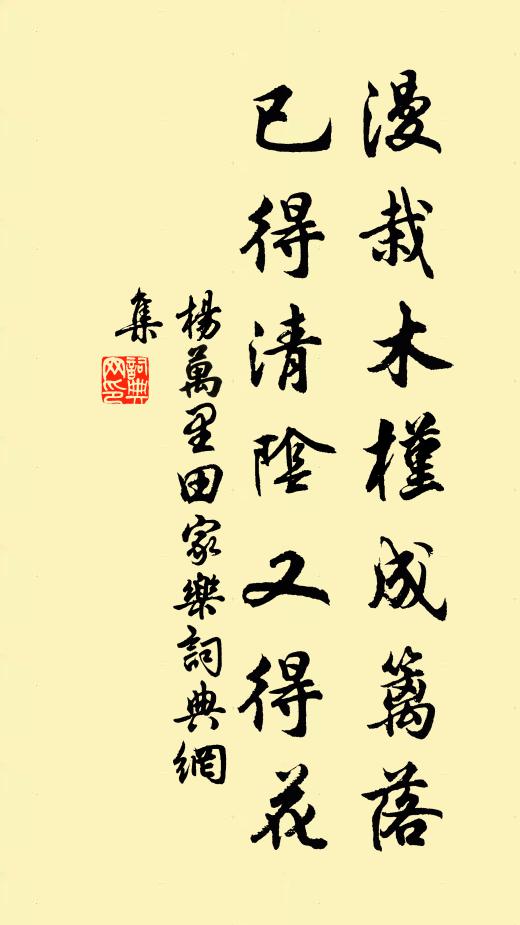 漫栽木槿成篱落
已得清陰又得花
楊萬里田家樂詞典網
集
詞典网印